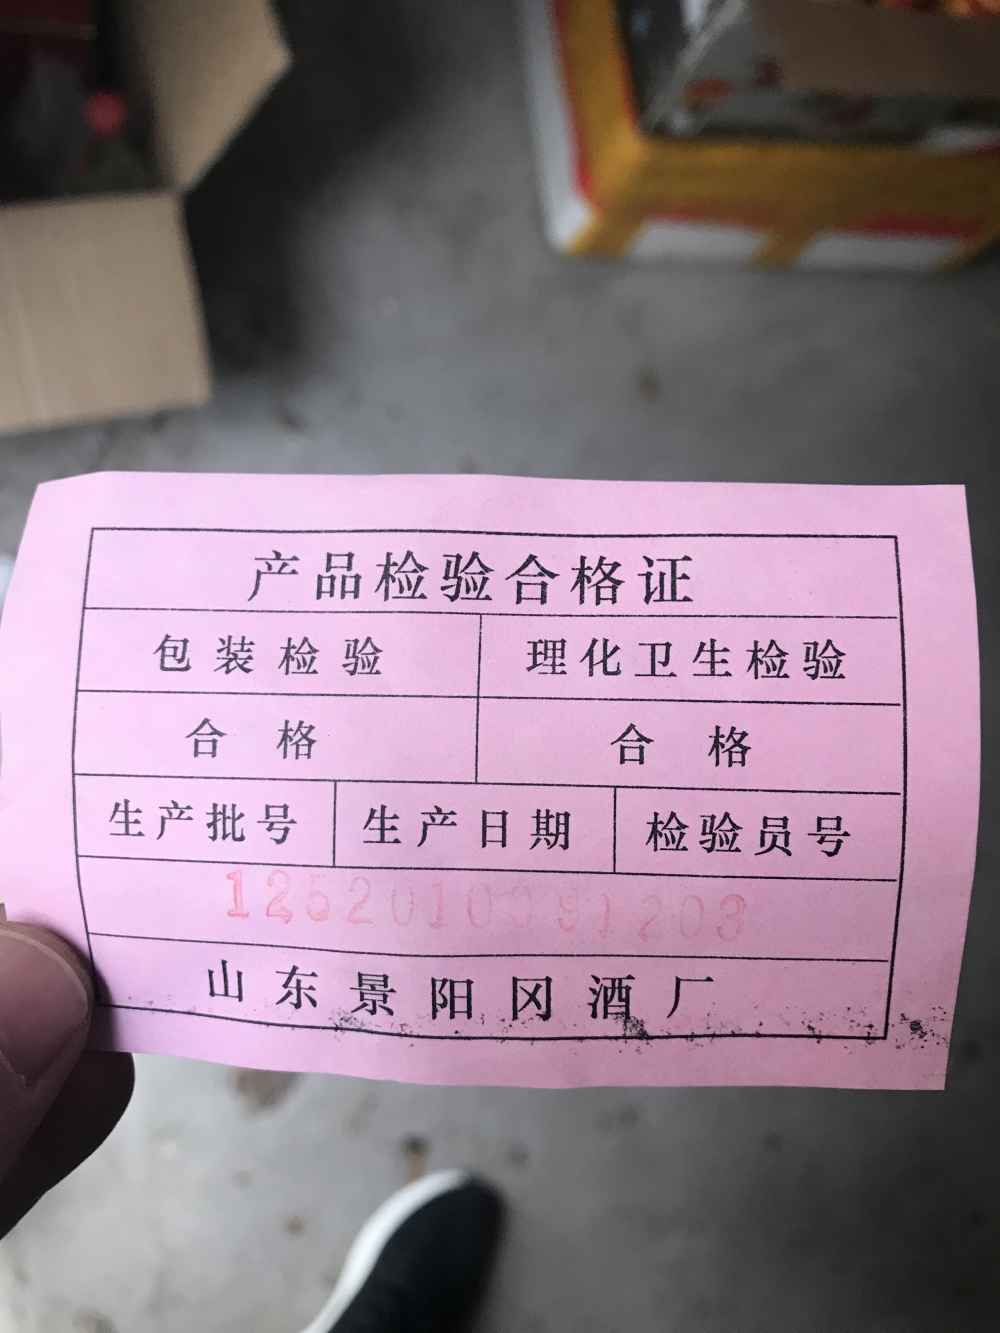 产品检验合格证
包装检验 理化卫生检验
合格 合格
生产批号 生产日期 检验员号
山东景阳冈酒厂